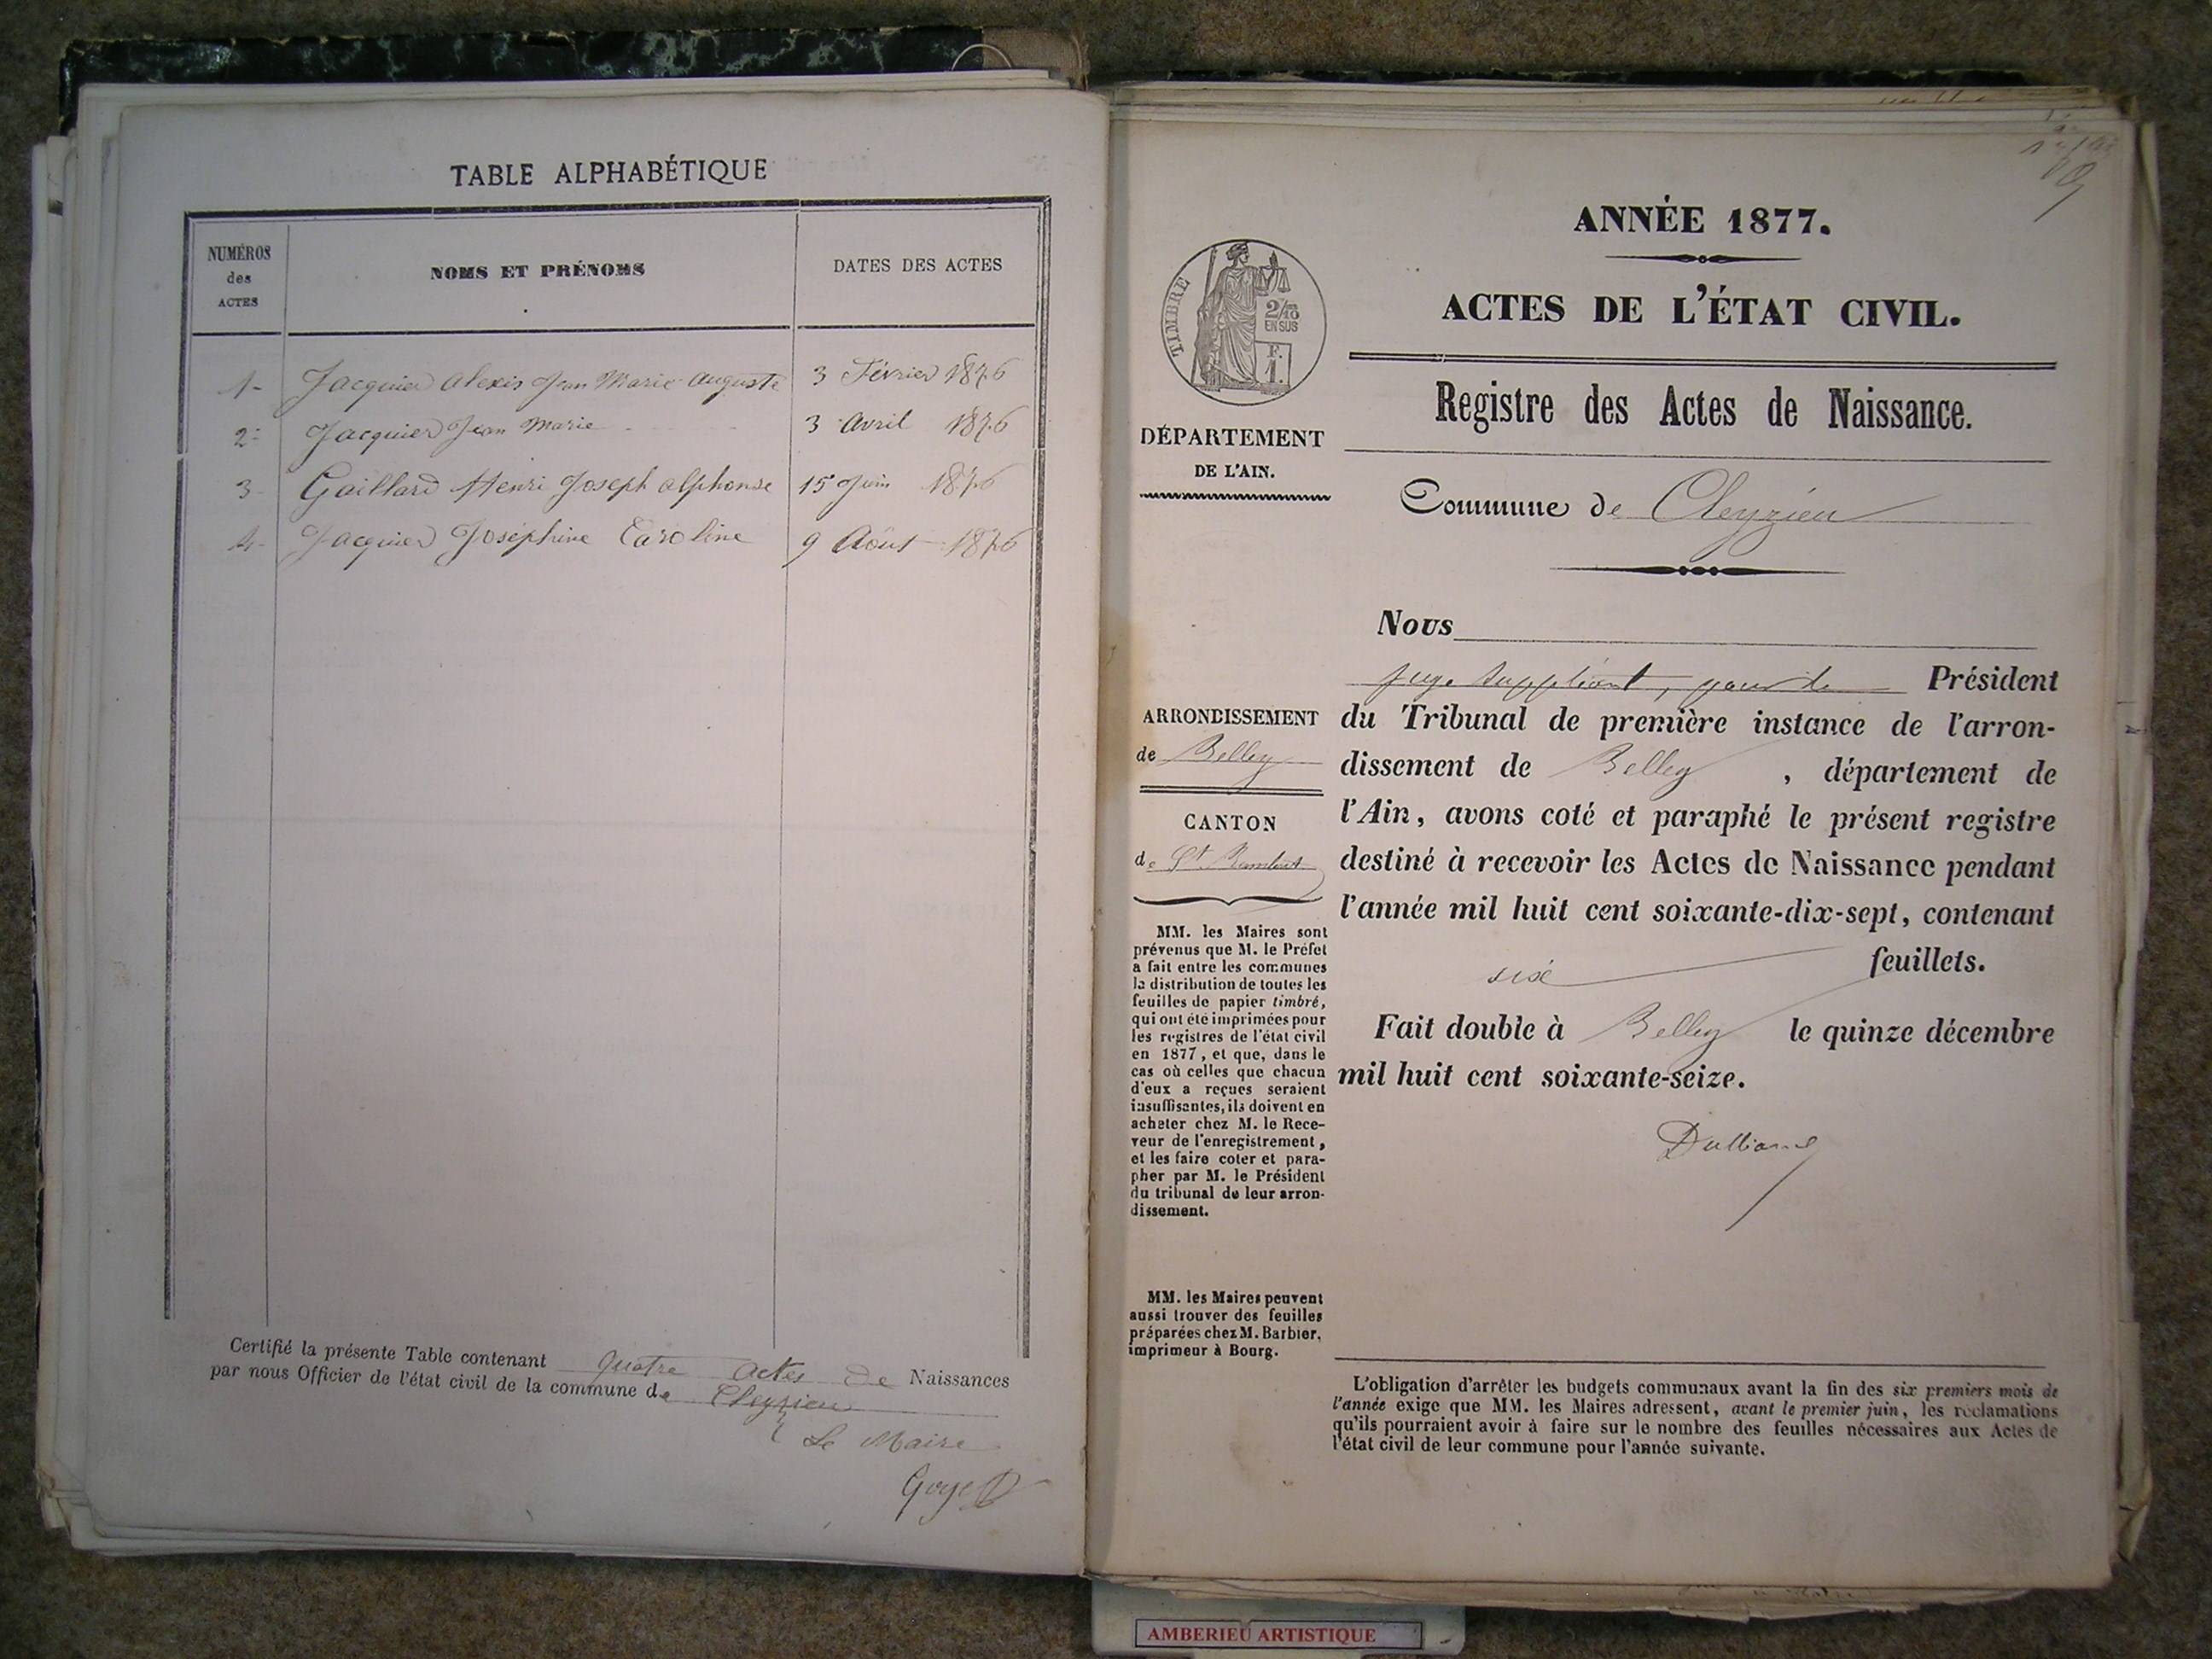 TABLE ALPHABÉTIQUE
NUMÉROS
des
ACTES
NOMS ET PRÉNOMS
DATES DES ACTES
1- Jacquier Alexis Jean Marie Auguste 3 Février 1876
2- Jacquier Jean Marie 3 Avril 1876
3- Gaillard Henri Joseph Alphonse 15 Juin 1876
4- Jacquier Joséphine Caroline 9 Août 1876
Certifié la présente Table contenant quatre actes de Naissances
par nous Officier de l'état civil de la commune de Cleyzieu
Le Maire
ANNÉE 1877.
ACTES DE L'ÉTAT CIVIL.
Registre des Actes de Naissance.
Commune de Cleyzieu
TIMBRE
2/10
EN SUS
F.
1.
DÉPARTEMENT
DE L'AIN.
ARRONDISSEMENT
de Belley
CANTON
de St Rambert
MM. les Maires sont
prévenus que M. le Préfet
a fait entre les communes
la distribution de toutes les
feuilles de papier timbré,
qui ont été imprimées pour
les registres de l'état civil
en 1877, et que, dans le
cas où celles que chacun
d'eux a reçues seraient
insuffisantes, ils doivent en
acheter chez M. le Rece-
veur de l'enregistrement,
et les faire coter et para-
pher par M. le Président
du tribunal de leur arron-
dissement.
MM. les Maires peuvent
aussi trouver des feuilles
préparées chez M. Barbier,
imprimeur à Bourg.
Nous
juge suppléant, pour le Président
du Tribunal de première instance de l'arron-
dissement de Belley, département de
l'Ain, avons coté et paraphé le présent registre
destiné à recevoir les Actes de Naissance pendant
l'année mil huit cent soixante-dix-sept, contenant
six feuillets.
Fait double à Belley le quinze décembre
mil huit cent soixante-seize.
L'obligation d'arrêter les budgets communaux avant la fin des six premiers mois de
l'année exige que MM. les Maires adressent, avant le premier juin, les réclamations
qu'ils pourraient avoir à faire sur le nombre des feuilles nécessaires aux Actes de
l'état civil de leur commune pour l'année suivante.
AMBERIEU ARTISTIQUE